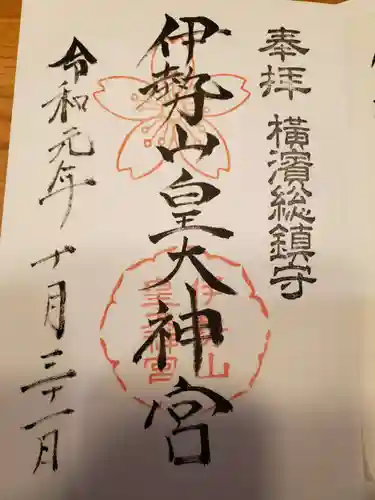 奉拝 横濱総鎮守
伊勢山皇大神宮
伊勢山
皇大神宮
令和元年十月三十一月